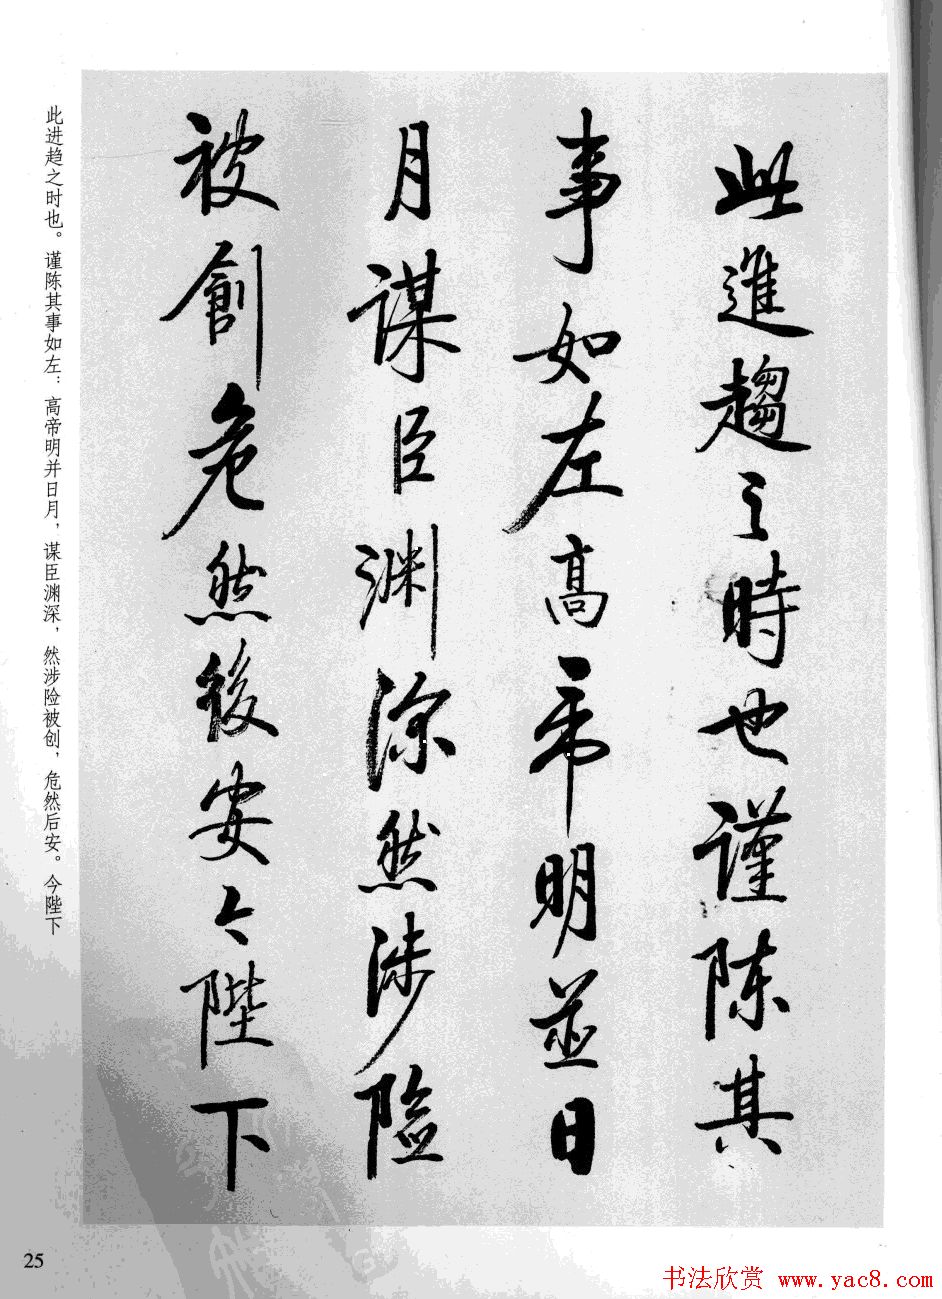 此進趨之時也謹陳其
事如左高帝明並日
月謀臣渊深然涉險
被創危然後安今陛下
此进趋之时也。谨陈其事如左：高帝明并日月，谋臣渊深，然涉险被创，危然后安。今陛下
25
书法欣赏 www.yac8.com